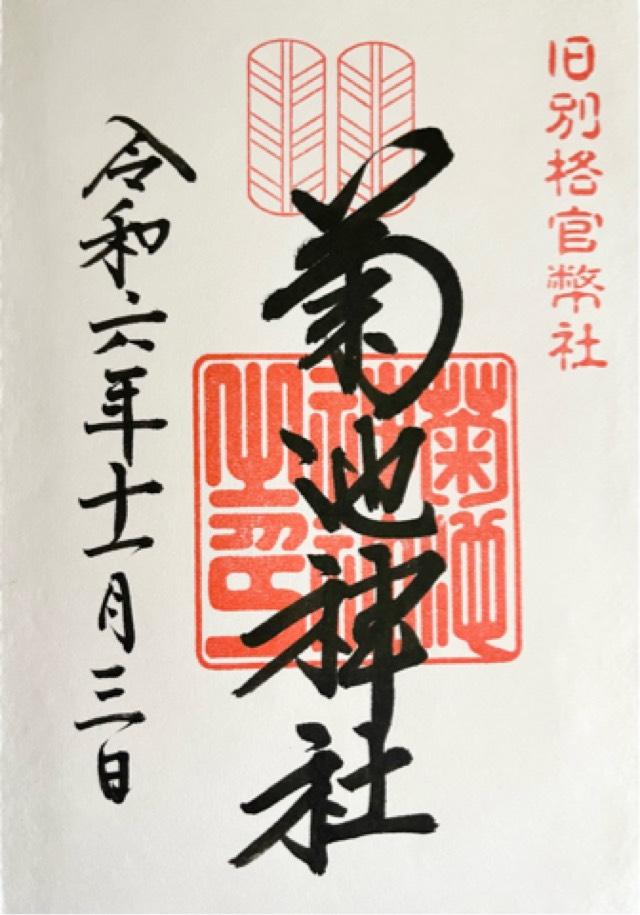 旧別格官幣社
菊池神社
菊池
神社
之印
令和六年十一月三日